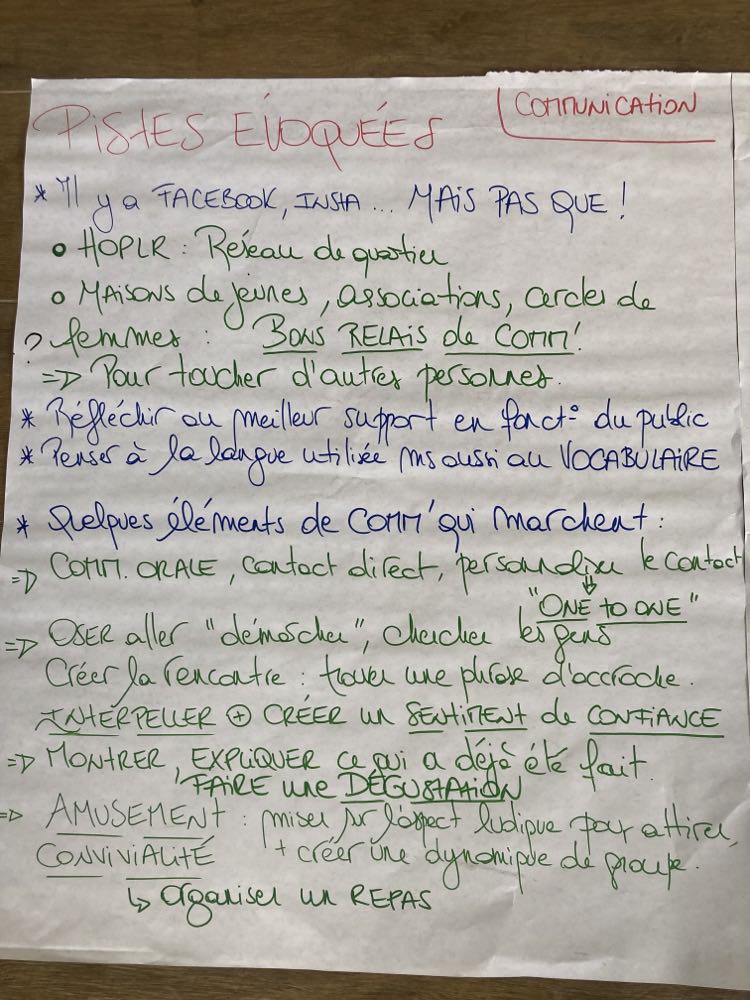 PISTES ÉVOQUÉES
COMMUNICATION
* Il y a FACEBOOK, INSTA ... MAIS PAS QUE !
o HOPLR : Réseau de quartier
o MAISONS de jeunes, associations, cercles de
? femmes : BONS RELAIS de COMM' !
=> Pour toucher d'autres personnes.
* Réfléchir au meilleur support en fonct° du public
* Penser à la langue utilisée ms aussi au VOCABULAIRE
* Quelques éléments de COMM' qui marchent :
=> COMM. ORALE, contact direct, personnaliser le contact
"ONE to ONE"
=> OSER aller "démarcher", chercher les gens
Créer la rencontre : trouver une phrase d'accroche.
INTERPELLER + CRÉER un SENTIMENT de CONFIANCE
=> MONTRER, EXPLIQUER ce qui a déjà été fait.
FAIRE une DÉGUSTATION
=> AMUSEMENT : miser sur l'aspect ludique pour attirer,
CONVIVIALITÉ + créer une dynamique de groupe.
↳ Organiser un REPAS